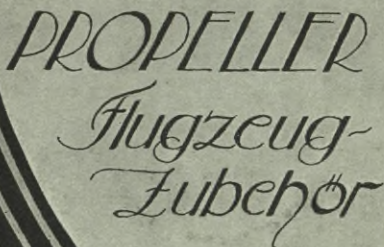 PROPELLER
Flugzeug-
Zubehör